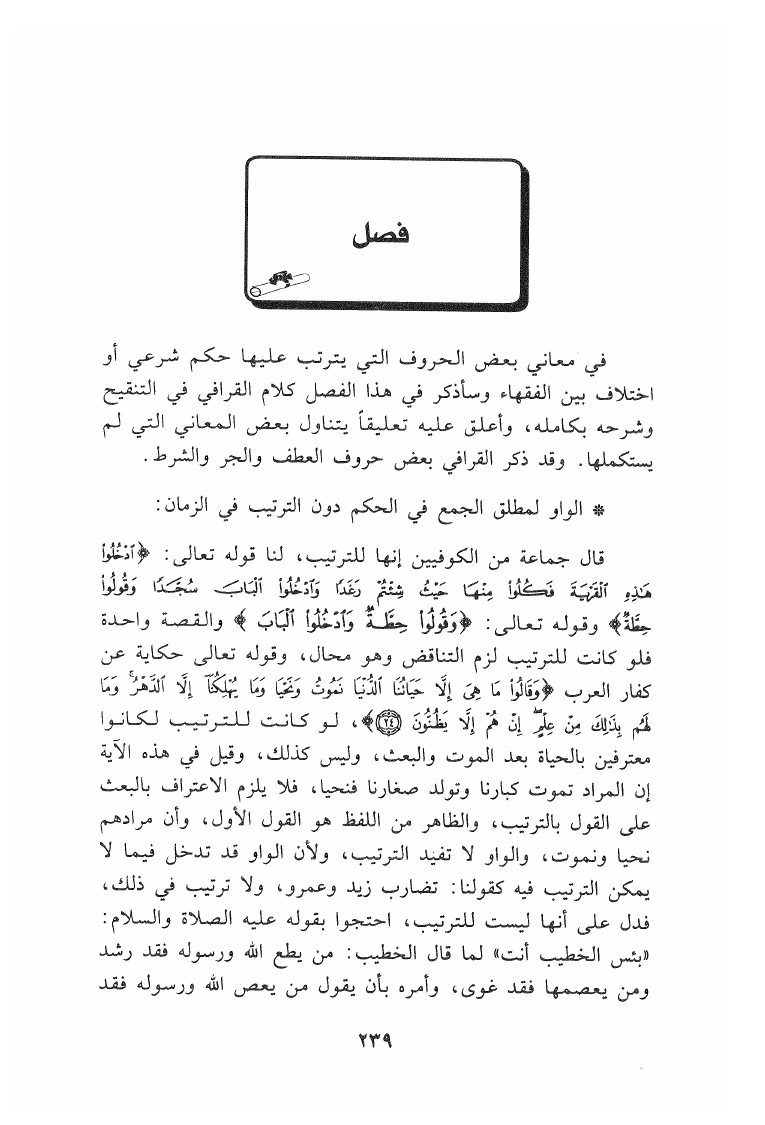 فصل
في معاني بعض الحروف التي يترتب عليها حكم شرعي أو
اختلاف بين الفقهاء وسأذكر في هذا الفصل كلام القرافي في التنقيح
وشرحه بكامله، وأعلق عليه تعليقاً يتناول بعض المعاني التي لم
يستكملها. وقد ذكر القرافي بعض حروف العطف والجر والشرط.
* الواو لمطلق الجمع في الحكم دون الترتيب في الزمان:
قال جماعة من الكوفيين إنها للترتيب، لنا قوله تعالى: ﴿ٱدْخُلُوا۟
هَـٰذِهِ ٱلْقَرْيَةَ فَكُلُوا۟ مِنْهَا حَيْثُ شِئْتُمْ رَغَدًا وَٱدْخُلُوا۟ ٱلْبَابَ سُجَّدًا وَقُولُوا۟
حِطَّةٌ﴾ وقوله تعالى: ﴿وَقُولُوا۟ حِطَّةٌ وَٱدْخُلُوا۟ ٱلْبَابَ﴾ والقصة واحدة
فلو كانت للترتيب لزم التناقض وهو محال، وقوله تعالى حكاية عن
كفار العرب ﴿وَقَالُوا۟ مَا هِىَ إِلَّا حَيَاتُنَا ٱلدُّنْيَا نَمُوتُ وَنَحْيَا وَمَا يُهْلِكُنَآ إِلَّا ٱلدَّهْرُ ۚ وَمَا
لَهُم بِذَٰلِكَ مِنْ عِلْمٍ ۖ إِنْ هُمْ إِلَّا يَظُنُّونَ ﴿٢٤﴾﴾، لو كانت للترتيب لكانوا
معترفين بالحياة بعد الموت والبعث، وليس كذلك، وقيل في هذه الآية
إن المراد تموت كبارنا وتولد صغارنا فنحيا، فلا يلزم الاعتراف بالبعث
على القول بالترتيب، والظاهر من اللفظ هو القول الأول، وأن مرادهم
نحيا ونموت، والواو لا تفيد الترتيب، ولأن الواو قد تدخل فيما لا
يمكن الترتيب فيه كقولنا: تضارب زيد وعمرو، ولا ترتيب في ذلك،
فدل على أنها ليست للترتيب، احتجوا بقوله عليه الصلاة والسلام:
«بئس الخطيب أنت» لما قال الخطيب: من يطع الله ورسوله فقد رشد
ومن يعصمها فقد غوى، وأمره بأن يقول من يعص الله ورسوله فقد
٢٣٩